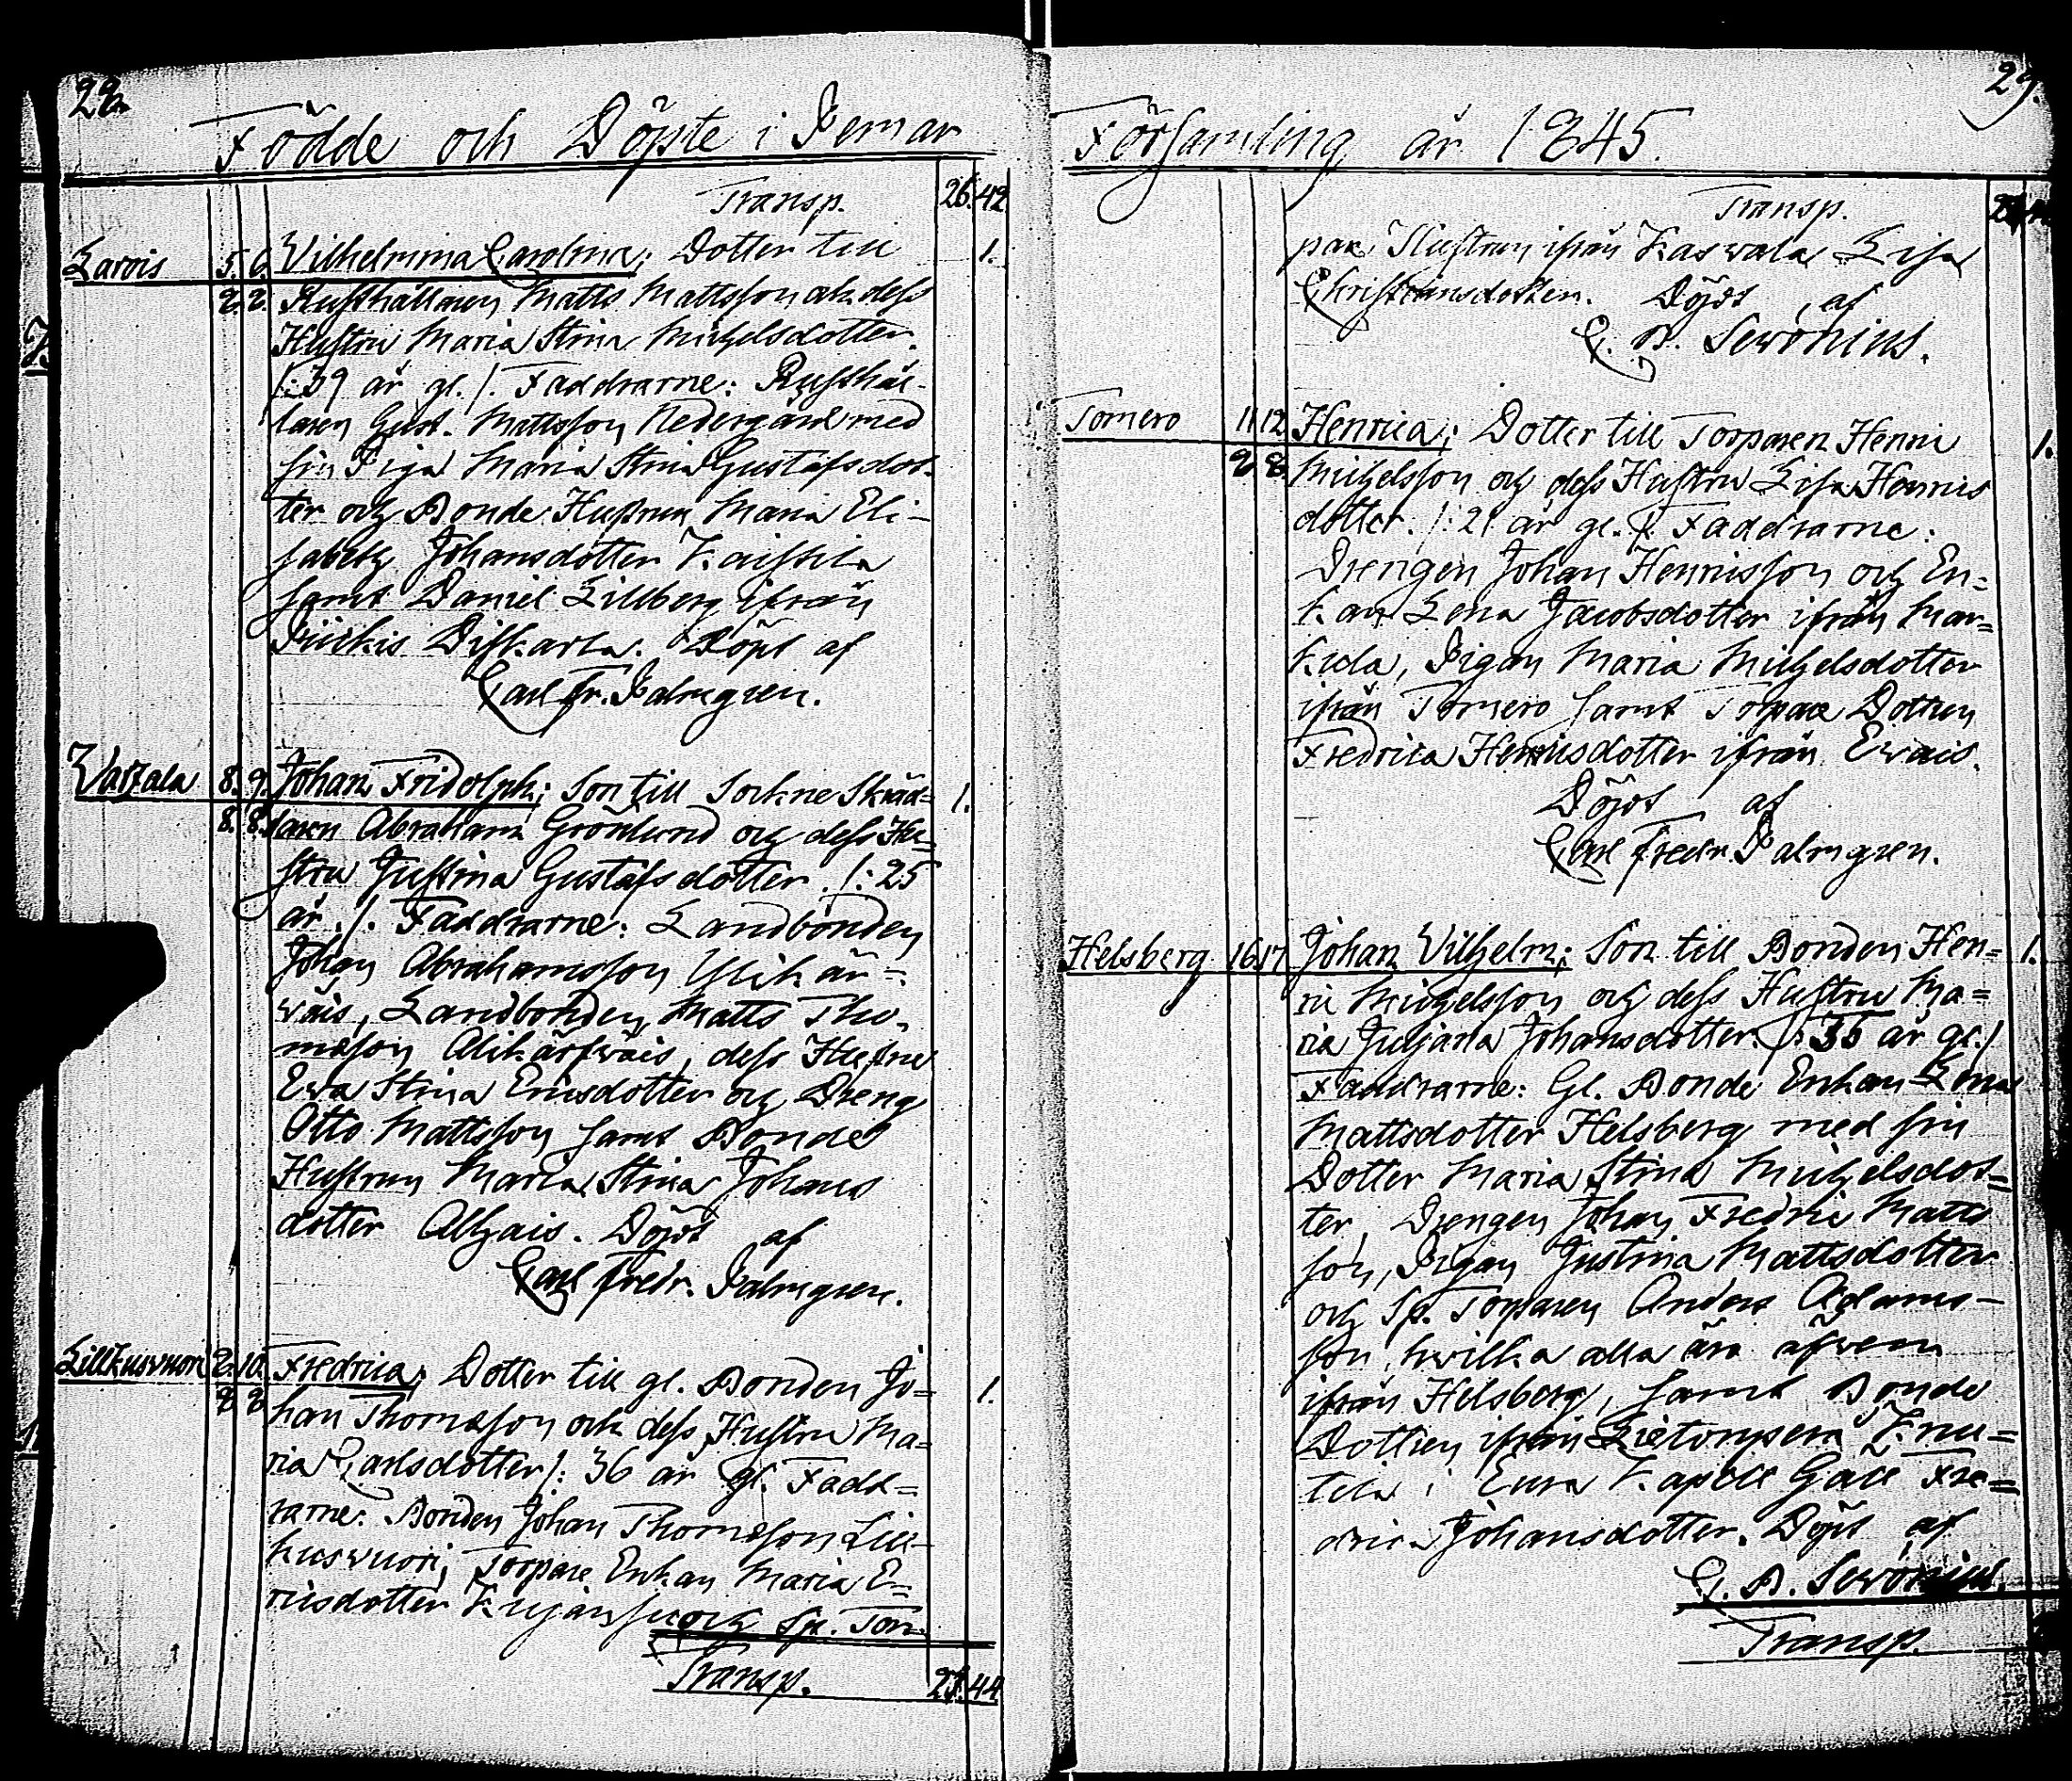 28.
Födde och Döpte i Pemar
Transp. 26. 42.
Larvis 5. 6. Wilhelmina Carolina; Dotter till 1.
8. 8. Rusthållaren Matts Mattsson och dess
Hustru Maria Stina Michelsdotter.
/: 39 år gl. /. Faddrarne: Rusthål-
laren Gust. Mattsson Nedergård med
sin Piga Maria Stina Gustafsdot-
ter och Bonde Hustrun Maria Eli-
sabeth Johansdotter
samt Daniel Lillberg ifrån
Döpt af
Carl Fr. Palmgren.
8. 9. Johan Fridolph; Son till Sockne Skräd= 1.
8. 8. daren Abraham Grönlund och dess Hu=
stru Justina Gustafsdotter. /: 25
år. /. Faddrarne: Landbonden
Johan Abrahamsson
Landbonden Matts Tho-
masson dess Hustru
Eva Stina Ericsdotter och Dreng
Otto Mattsson samt Bonde
Hustrun Maria Stina Johans
dotter Döpt af
Carl Fredr. Palmgren.
Lillkusvuori 9. 10. Fredrica; Dotter till gl. Bonden Jo= 1.
8 8 han Thomasson och dess Hustru Ma=
ria Carlsdotter /: 36 år gl. Fadd=
rarne: Bonden Johan Thomasson Lill-
kusvuori, Torpare Enkan Maria E=
ricsdotter och Sp. Tor-
Transp. 27. 44
29.
Församling år 1845.
Transp.
pare Hustrun ifrån Kaswala Lisa
Christiansdotter. Döpt af
C. B. Serönius.
Tomero 11 12 Henrica; Dotter till Torparen Henric 1.
8 8. Michelsson och dess Hustru Lisa Henrics
dotter. /: 21 år gl. /. Faddrarne:
Drengen Johan Henricsson och En=
kan Lena Jacobsdotter ifrån Mar=
kula, Pigan Maria Michelsdotter
ifrån Tomero samt Torpare Dottren
Fredrica Henricsdotter ifrån Evais.
Döpt af
Carl Fredr. Palmgren.
Helsberg 16 17 Johan Vilhelm; Son till Bonden Hen= 1.
ric Michelsson och dess Hustru Ma=
ria Juljana Johansdotter. /: 35 år gl. /
Faddrarne: Gl. Bonde Enkan Lena
Mattsdotter Helsberg med sin
Dotter Maria Stina Michelsdot=
ter, Drengen Johan Fredric Matts
son, Pigan Justina Mattsdotter
och Sp. Torparen Anders Adams-
son, hwilka alla äro äfwen
ifrån Helsberg, samt Bonde
Dottren ifrån
i Eura Kapell Fre=
drica Johansdotter. Döpt af
C. B. Serönius.
Transp.